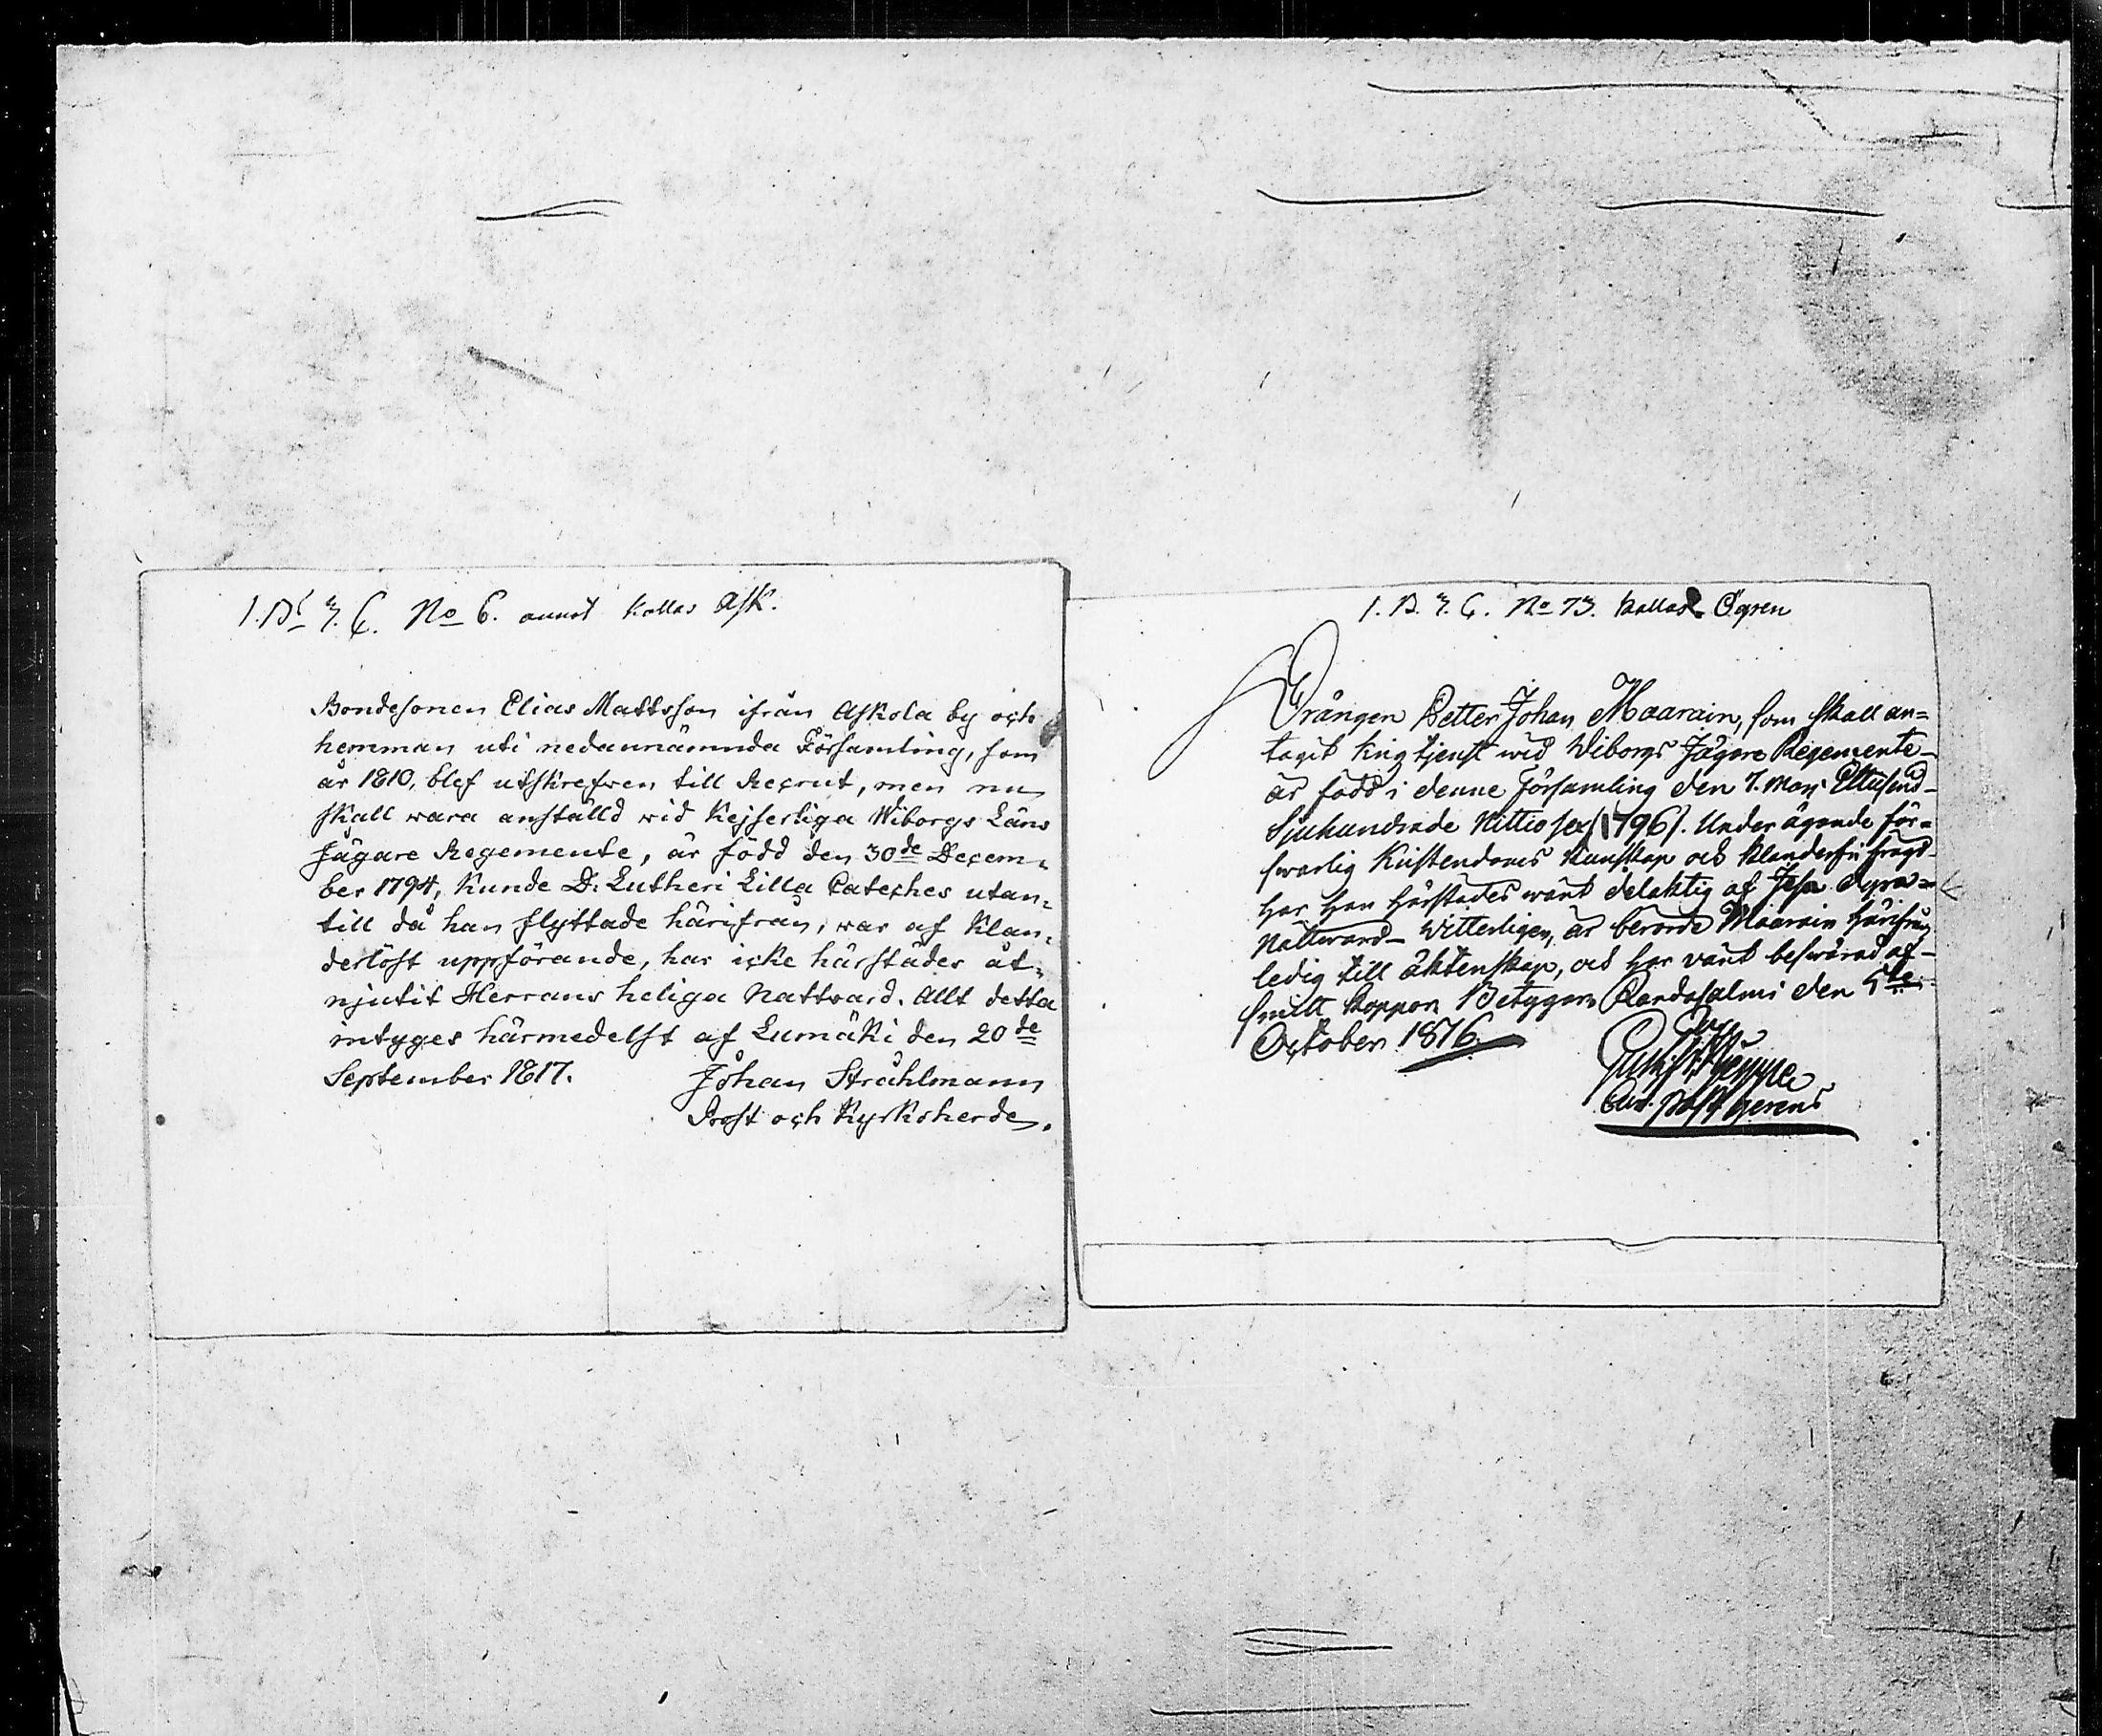 1. Bt 3. C. No 6. annat kallas Ask.
Bondesonen Elias Mattsson ifrån Askola by och
hemman uti nedannämnda Församling, som
år 1810, blef utskrefwen till Recrut, men nu
skall wara anställd wid Kejserliga Wiborgs Läns
Jägare Regemente, är född den 30de Decem=
ber 1794, Kunde D. Lutheri Lilla Cateches utan=
till då han flyttade härifrån, war af klan=
derlöst uppförande, har icke härstädes åt=
njutit Herrans heliga Nattvard. Allt detta
intyges härmedelst af Lumäki den 20de
September 1817. Johan Stråhlmann
Prost och Kyrkoherde.
1. B. 3. C. No 73. kallas Ögren
Drängen Petter Johan Maarain, som skall an=
tagit krigstjenst wid Wiborgs Jägare Regemente
är född i denne Församling den 7. Maji Ettusend
Sjuhundrade Nittiosex (1796). Under ägande för=
svarlig Kristendoms kunskap och klanderfri frägd
har han härstädes warit delaktig af Jesu dyra
Nattward. Witterligen, är berörde Maarain härifrån
ledig till äktenskap, och har varit beswärad af
smitt koppor. Betygar Randasalmi den 5te
October 1816.